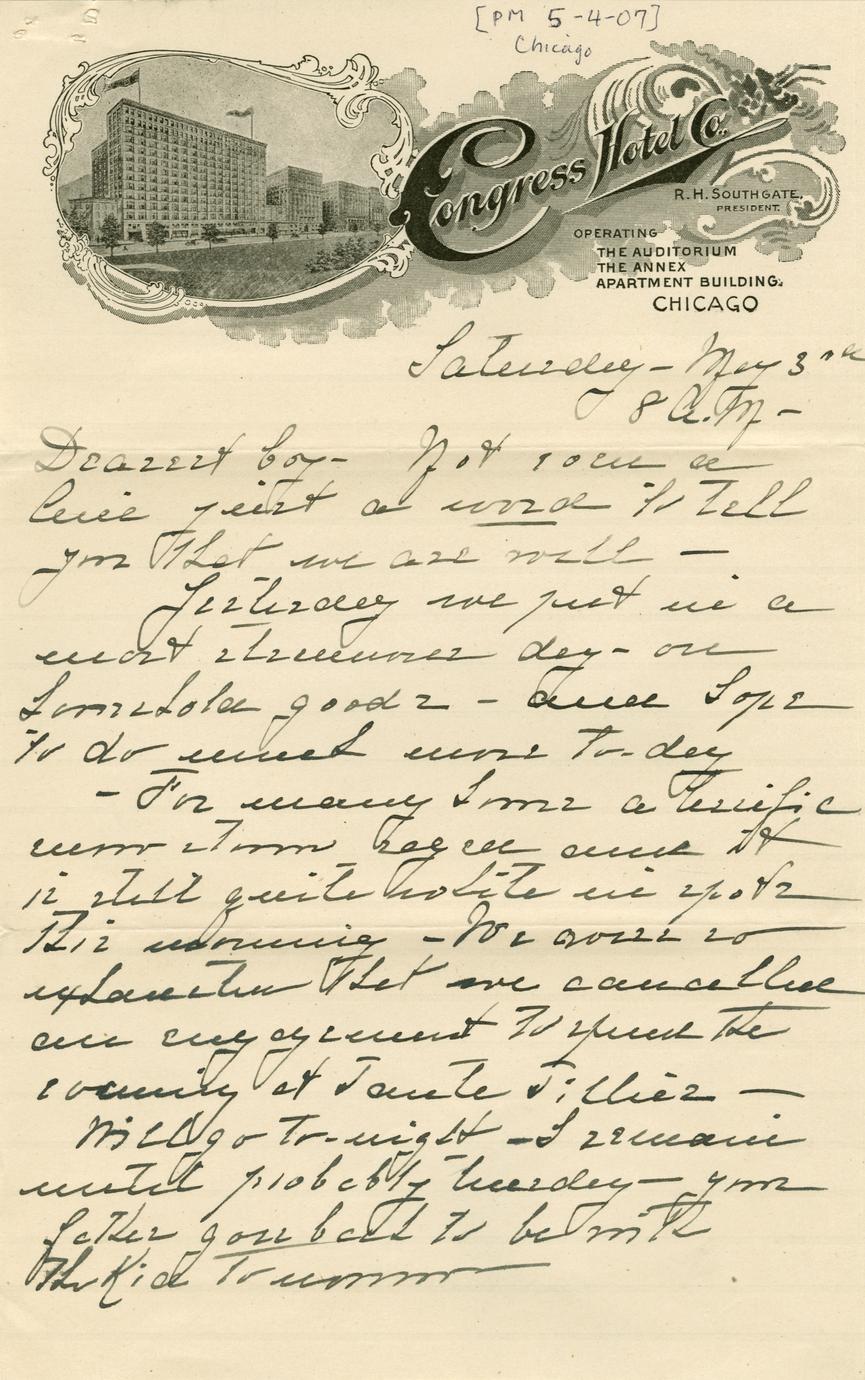 [PM 5-4-07]
Chicago
Congress Hotel Co.
R. H. SOUTHGATE,
PRESIDENT.
OPERATING
THE AUDITORIUM
THE ANNEX
APARTMENT BUILDING.
CHICAGO
Saturday - May 3rd
8 A.M -
Dearest boy - Not even a
line just a word to tell
you that we are well -
Yesterday we put in a
most strenuous day - on
household goods - and hope
to do much more to-day
- For many hours a terrific
snow storm raged and it
is still quite white in spots
this morning - We were so
exhausted that we cancelled
an engagement to spend the
evening at Tante Tillie's -
Will go to-night - I remain
until probably Tuesday - your
father goes back to be with
the Kid tomorrow